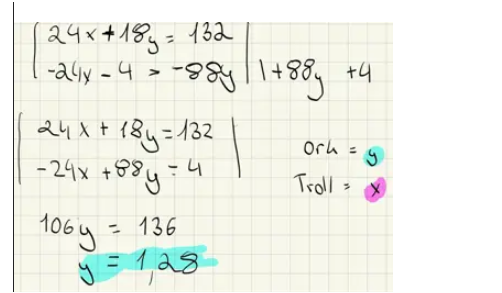 24x + 18y = 132
-24x - 4 = -88y | 1+88y +4
24x + 18y = 132
-24x + 88y = 4
Ork = y
Troll = x
106y = 136
y = 1,28